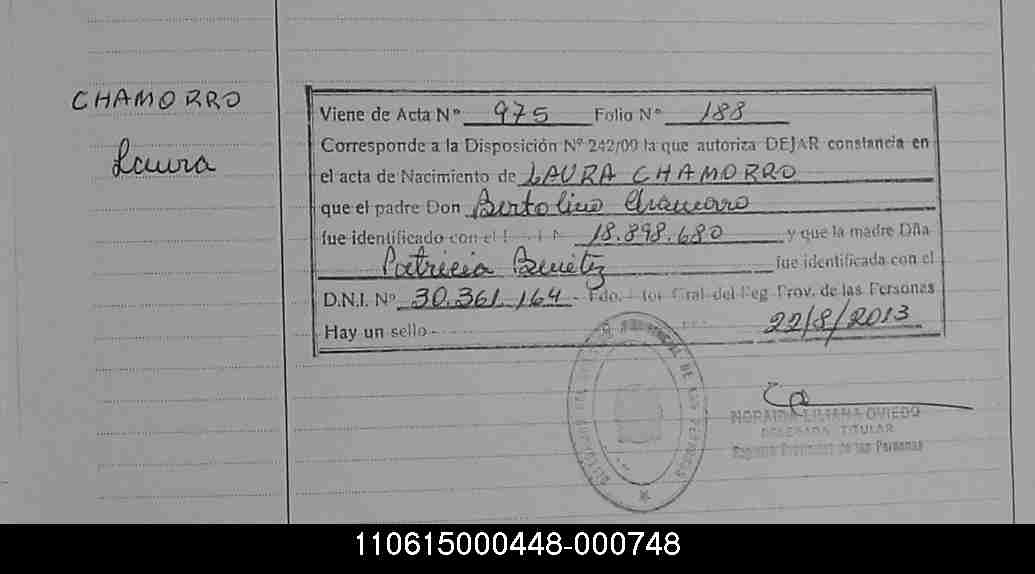 CHAMORRO
Laura
Viene de Acta Nº 975 Folio Nº 188
Corresponde a la Disposición Nº 242/09 la que autoriza DEJAR constancia en
el acta de Nacimiento de LAURA CHAMORRO
que el padre Don Bertolino Chamorro
fue identificado con el 18.898.680 y que la madre Dña
Patricia Benitez fue identificada con el
D.N.I. Nº 30.361.164 - Fdo. Gral del Reg Prov. de las Personas
Hay un sello - 22/8/2013
LILIANA OVIEDO
DELEGADA TITULAR
Registro Provincial de las Personas
110615000448-000748